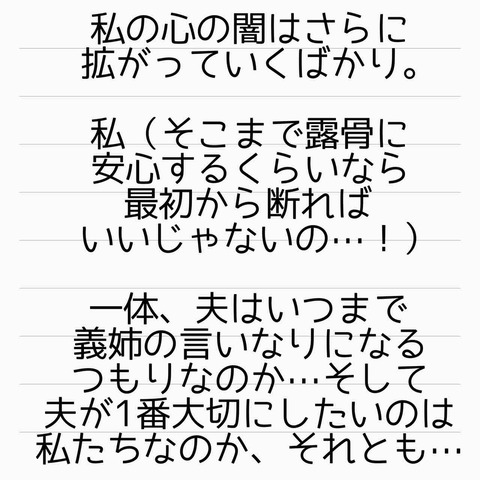 私の心の闇はさらに
拡がっていくばかり。
私（そこまで露骨に
安心するくらいなら
最初から断れば
いいじゃないの…！）
一体、夫はいつまで
義姉の言いなりになる
つもりなのか…そして
夫が1番大切にしたいのは
私たちなのか、それとも…